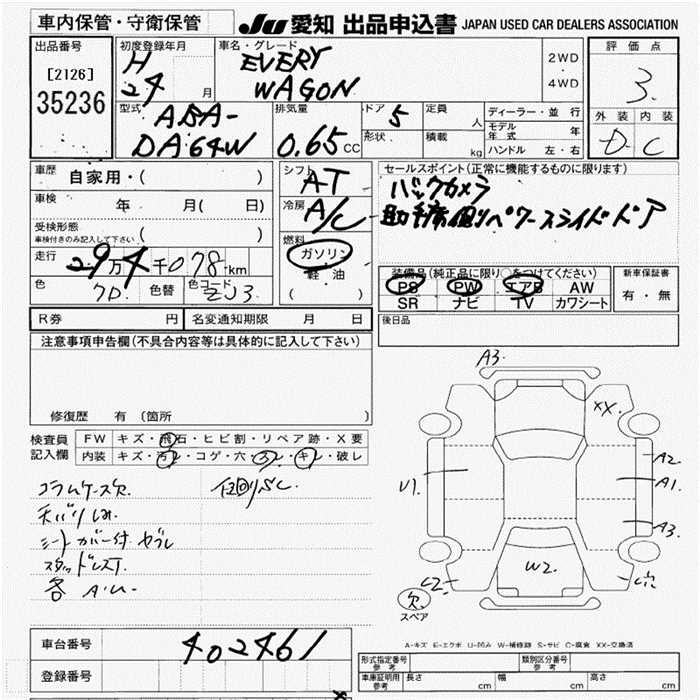 車内保管・守衛保管 JU 愛知 出品申込書 JAPAN USED CAR DEALERS ASSOCIATION
出品番号
[2126]
35236
初度登録年月
H
24 月
車名・グレード
EVERY
WAGON
2WD
・
4WD
評価点
3.
外装 内装
D C
型式
ABA-
DA64W
排気量
0.65 CC
ドア 5
形状
定員 人
積載 kg
ディーラー・並行
モデル年式 年
ハンドル 左・右
車歴 自家用・( )
車検 年 月( 日)
受検形態
車検付きのみ記入して下さい ( )
走行 29万4千078km
色 色替 色コード ZJ3
シフト AT
冷房 A/C
燃料
ガソリン
軽・油
( )
セールスポイント(正常に機能するものに限ります)
バックカメラ
助手席側リパワースライドドア
装備品(純正品に限り○をつけてください)
PS PW エアB AW
SR ナビ TV カワシート
新車保証書
有・無
R券 円 名変通知期限 月 日
後日品
注意事項申告欄(不具合内容等は具体的に記入して下さい)
修復歴 有 (箇所 )
検査員記入欄
FW キズ・飛石・ヒビ割・リペア跡・X要
内装 キズ・汚レ・コゲ・穴・スレ・キレ・破レ
コラムケース欠
天バリしみ
シートカバー付 ヤブレ
スタッドレスT.
各 A.U.
A3.
XX.
A2.
A1.
A3
U1.
W2.
C2.
C穴
欠
スペア
A-キズ E-エクボ U-凹み W-補修跡 S-サビ C-腐食 XX-交換済
車台番号 402461
登録番号
形式指定番号 参考
類別区分番号 参考
車庫証明用 参考 長さ cm 幅 cm 高さ cm